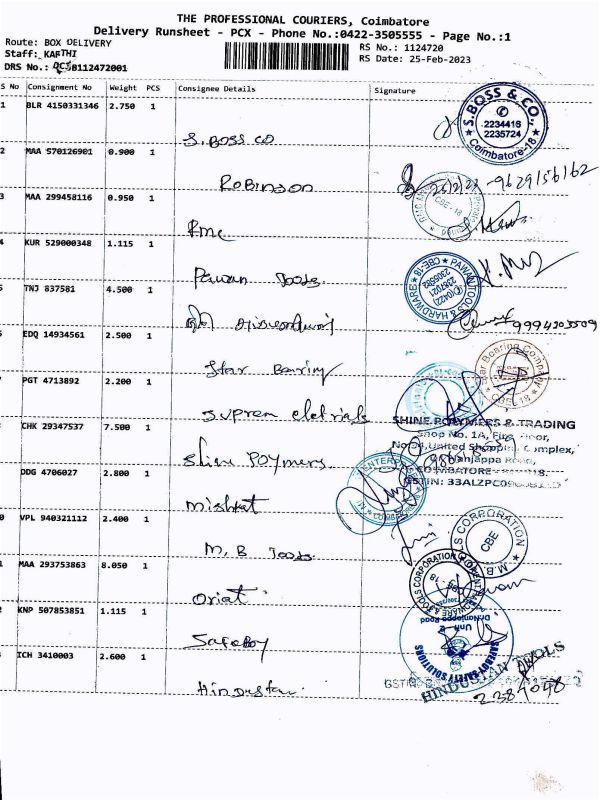 THE PROFESSIONAL COURIERS, Coimbatore
Delivery Runsheet - PCX - Phone No.:0422-3505555 - Page No.:1
Route: BOX DELIVERY
RS No.: 1124720
Staff: KARTHI
RS Date: 25-Feb-2023
DRS No.: PCSB112472001
S No Consignment No Weight PCS Consignee Details Signature
1 BLR 4150331346 2.750 1
S. BOSS CO
S. BOSS & CO.,
2234416
2235724
Coimbatore-18
2 MAA 570126901 0.900 1
Robinson
25/2/23 -9629156162
3 MAA 299458116 0.950 1
RMC
CBE-18
4 KUR 529000348 1.115 1
Pawan Tools
PAWAN TOOLS & HARDWARE
(0422)
2387021
2305582
CBE-18
5 TNJ 837581 4.500 1
9994303509
6 EDQ 14934561 2.500 1
Star Bearing
Star Bearing Company
CBE-18
7 PGT 4713892 2.200 1
Suprem eletrials
CHK 29347537 7.500 1
Shine Polymers
SHINE POLYMERS & TRADING
Shop No. 1A, First Floor,
No.54,United Shopping Complex,
Dr.Nanjappa Road,
COIMBATORE - 641 018.
DDG 4706027 2.800 1
Mishkat
0 VPL 940321112 2.400 1
M. B Tools
M.B. TOOLS CORPORATION
CBE
1 MAA 293753863 8.050 1
Oriat
2 KNP 507853851 1.115 1
Safeboy
SAFEBOY SAFETY SOLUTIONS
Dr.Nanjappa Road
3 ICH 3410003 2.600 1
Hindustan
HINDUSTAN TOOLS
GSTIN
2384048